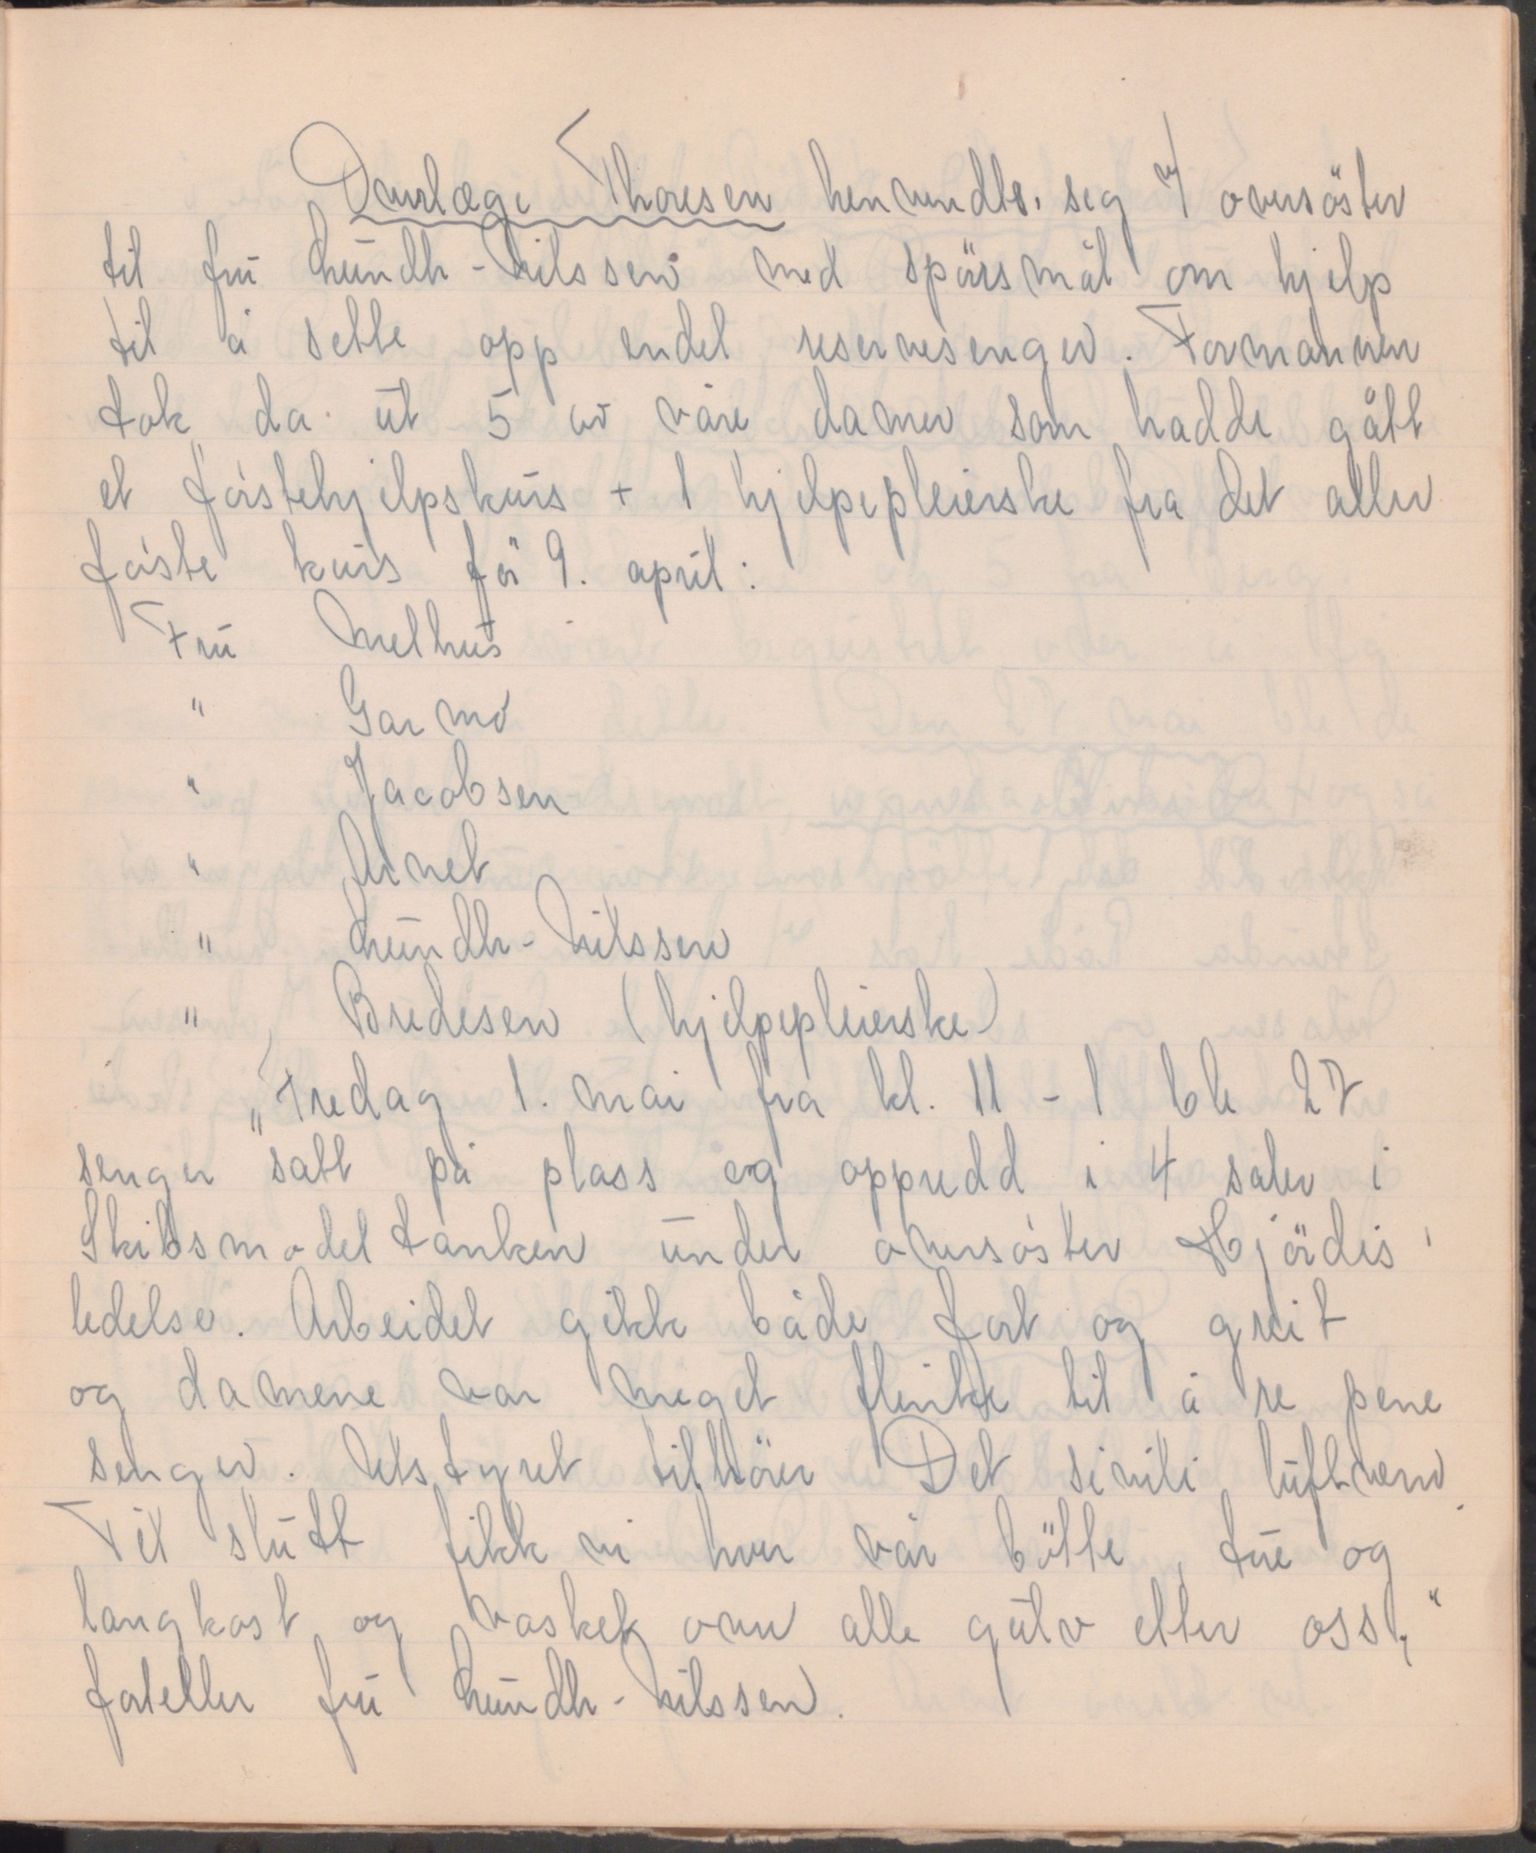 Overlæge Thoresen henvendte seg v/ oversöster
til fru Lundh-Nilssen med spörsmål om hjelp
til å sette opp endel reservesenger. Formannen
tok da ut 5 av våre damer som hadde gått
et förstehjelpskurs + 1 hjelpepleierske fra det aller
förste kurs för 9. april:
Fru Melhus
" Garmo
" Jacobsen
" Arnet
" Lundh-Nilssen
" Bredesen (hjelpepleierske)
"Fredag 1. mai fra kl. 11 - 1 ble 27
senger satt på plass og oppredd i 4 saler i
Skibsmodeltanken under oversöster Hjördis'
ledelse. Arbeidet gikk både fort og greit
og damene var meget flinke til å re pene
senger. Utstyret tilhörer Det sivile luftvern.
Til slutt fikk vi hver vår bötte, fue og
langkost og vasket over alle gulv etter oss,"
forteller fru Lundh-Nilssen.